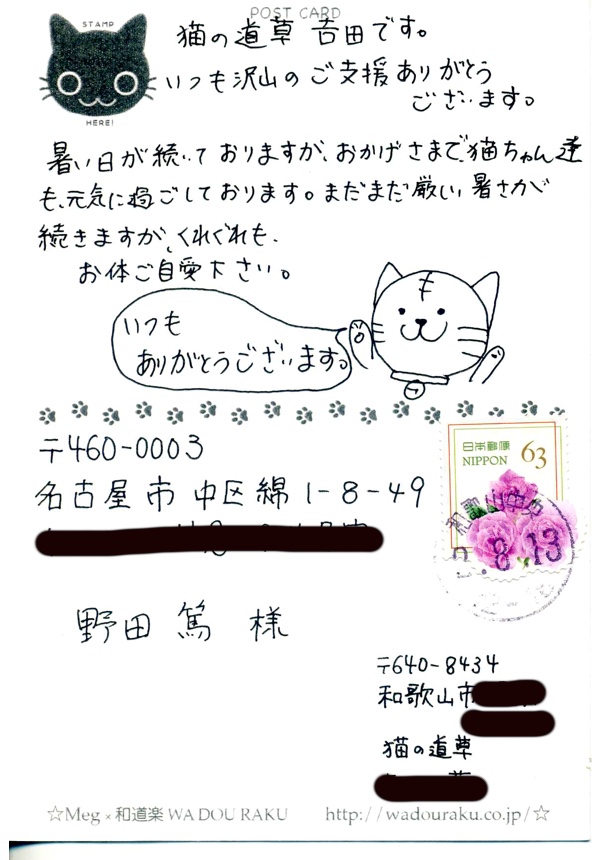 POST CARD
STAMP
HERE!
猫の道草 吉田です。
いつも沢山のご支援ありがとう
ございます。
暑い日が続いておりますが、おかげさまで、猫ちゃん達
も、元気に過ごしております。まだまだ厳しい暑さが
続きますが、くれぐれも、
お体ご自愛下さい。
いつも
ありがとうございます。
日本郵便
NIPPON 63
和歌山中央
8 13
〒460-0003
名古屋市中区錦1-8-49
野田 篤 様
〒640-8434
和歌山市
猫の道草
☆Meg×和道楽 WA DOU RAKU http://wadouraku.co.jp/☆